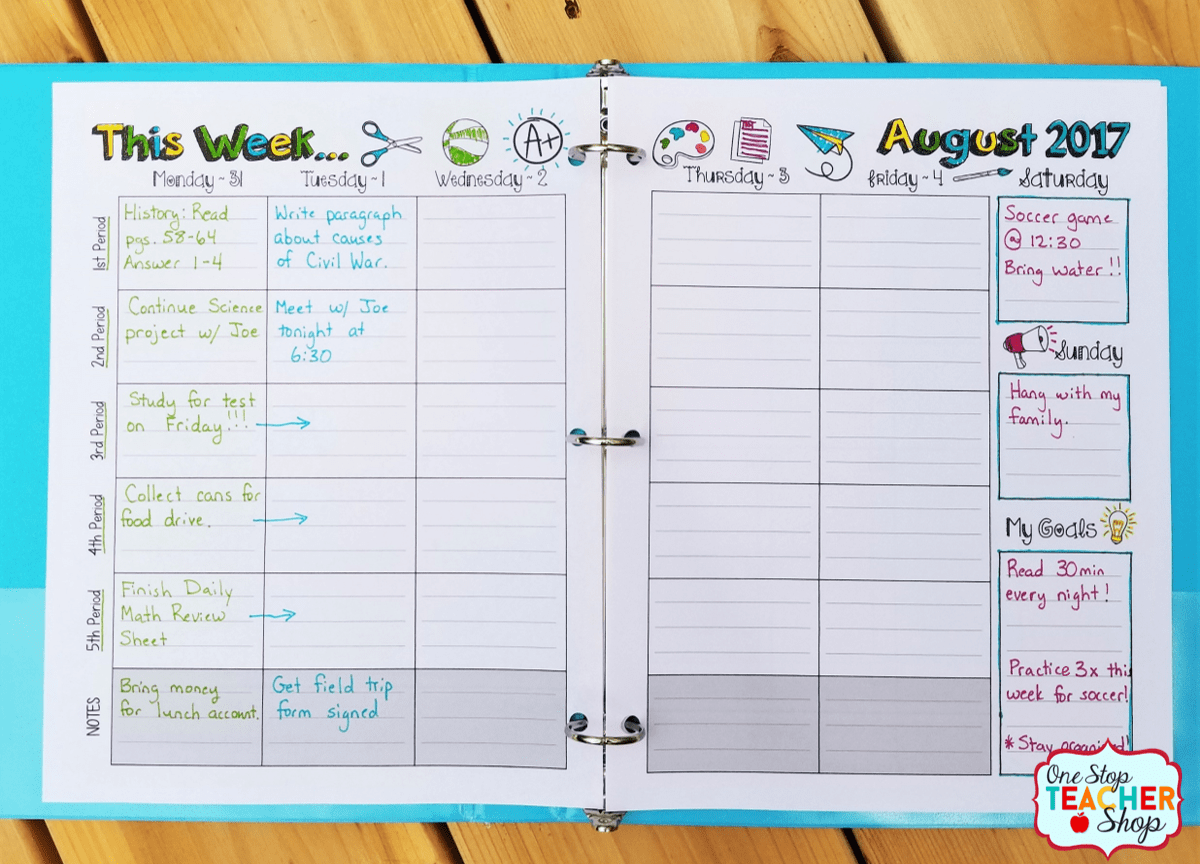 This Week...
August 2017
A+
Monday ~ 31
Tuesday ~ 1
Wednesday ~ 2
Thursday ~ 3
Friday ~ 4
Saturday
1st Period
History: Read
pgs. 58-64
Answer 1-4
Write paragraph
about causes
of Civil War.
Soccer game
@ 12:30
Bring water!!
2nd Period
Continue Science
project w/ Joe
Meet w/ Joe
tonight at
6:30
Sunday
3rd Period
Study for test
on Friday!!!
Hang with my
family.
4th Period
Collect cans for
food drive.
My Goals
5th Period
Finish Daily
Math Review
Sheet
Read 30min
every night!
NOTES
Bring money
for lunch account.
Get field trip
form signed
Practice 3x this
week for soccer!
*Stay organized!
One Stop
TEACHER
Shop